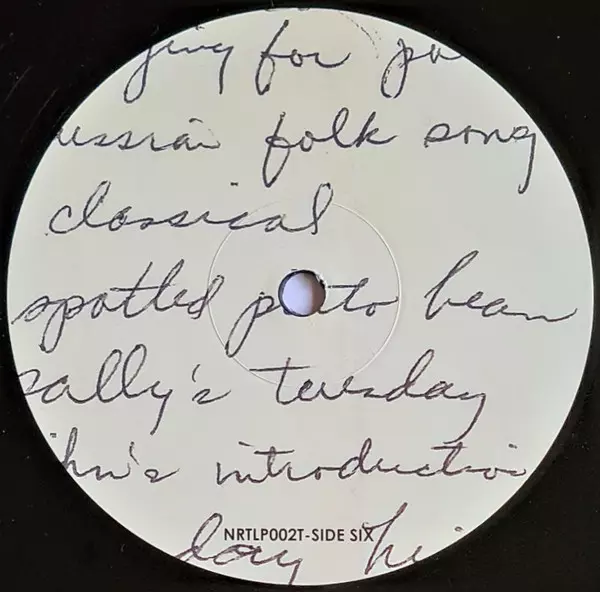 ying for yo
ussian folk song
classical
spotted pinto bean
sally's tuesday
ohn's introduction
day hi
NRTLP002T-SIDE SIX